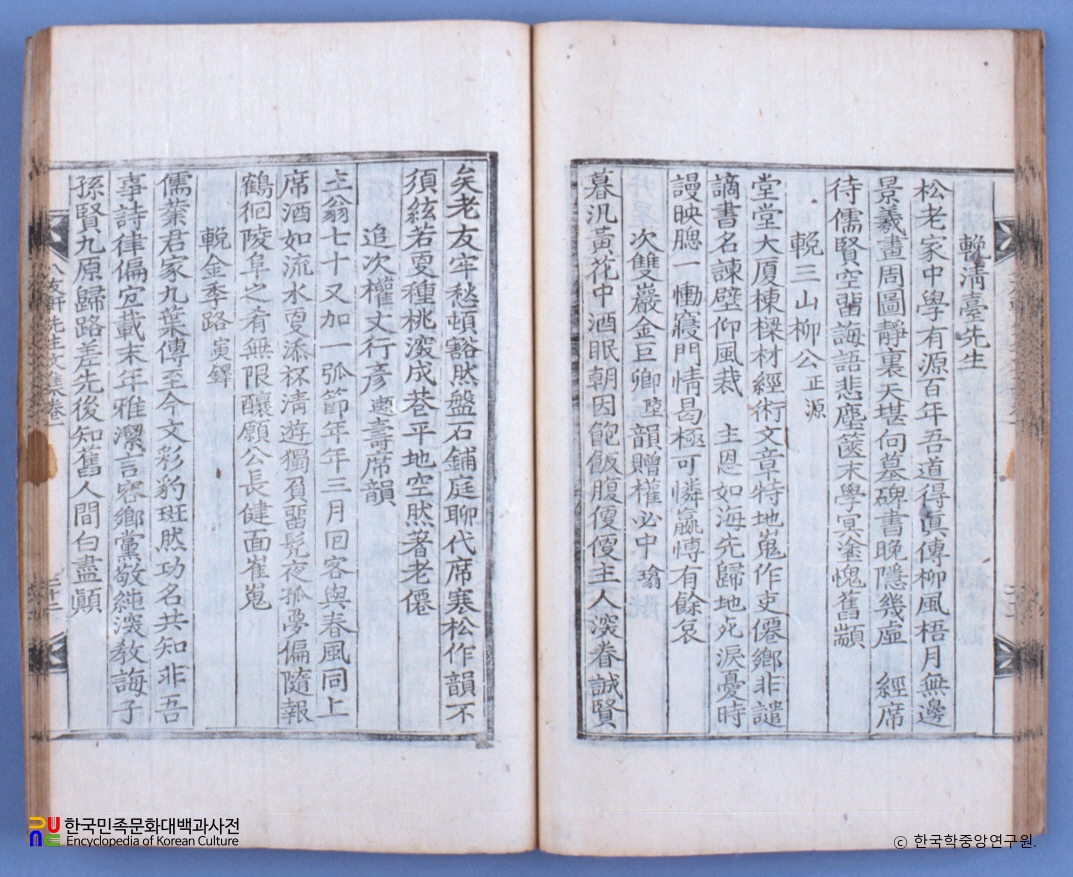 輓淸臺先生
松老家中學有源百年吾道得眞傳柳風梧月無邊
景羲畫周圖靜裏天堪向墓碑書晚隱幾虛 經席
待儒賢空留誨語悲塵篋末學冥途愧舊顓
輓三山柳公正源
堂堂大厦棟樑材經術文章特地嵬作吏僊鄕非譴
謫書名諫壁仰風裁 主恩如海先歸地死淚憂時
謾映腮一慟寢門情曷極可憐嬴愽有餘哀
次雙巖金巨卿 韻贈權必中
暮汎黃花中酒眠朝因飽飯腹便便主人深眷誠賢
矣老友牢愁頓豁然盤石鋪庭聊代席寒松作韻不
須絃若更種桃深成巷平地空然著老僊
追次權丈行彥 壽席韻
主翁七十又加一弧節年年三月回客與春風同上
席酒如流水更添杯清遊獨負留髡夜孤夢偏隨報
鶴徊陵阜之肴無限釀願公長健面崔嵬
輓金季路寅鐸
儒業君家九葉傳至今文彩豹斑然功名共知非吾
事詩律偏宜載末年雅潔言容鄕黨敬純深敎誨子
孫賢九原歸路差先後知舊人間白盡顚
先生文集卷
한국민족문화대백과사전
Encyclopedia of Korean Culture
© 한국학중앙연구원.